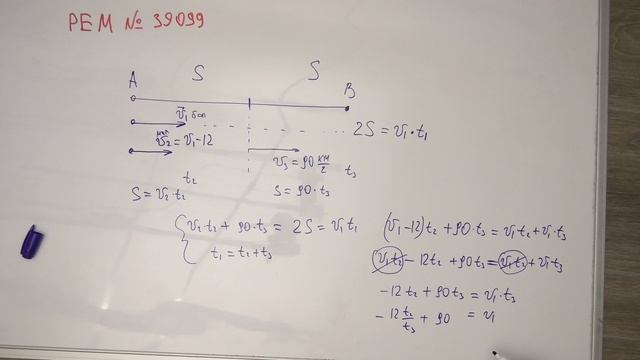 РЕМ № 39099
S S
A B
v₁ бол
v₂ = v₁-12
2S = v₁·t₁
v₃ = 90 км/ч t₃
t₂
S = v₂·t₂ S = 90·t₃
v₂t₂ + 90·t₃ = 2S = v₁t₁
t₁ = t₂+t₃
(v₁-12)t₂ + 90·t₃ = v₁t₂+v₁t₃
v₁t₂ - 12t₂ + 90t₃ = v₁t₂ + v₁t₃
-12t₂ + 90t₃ = v₁·t₃
-12 t₂/t₃ + 90 = v₁